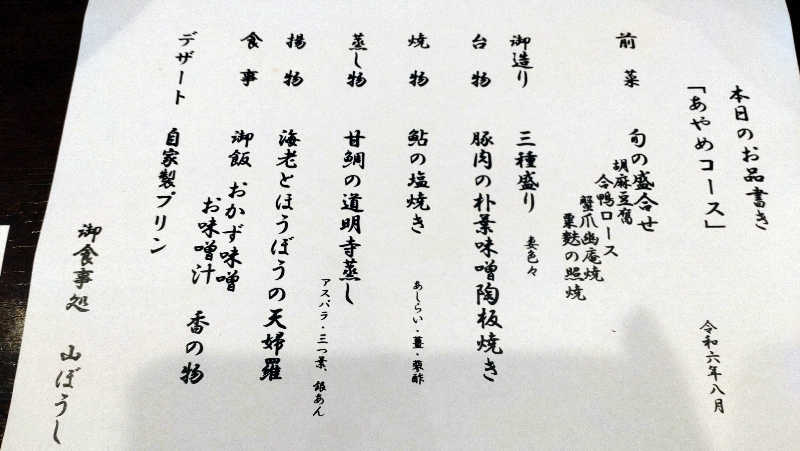 本日のお品書き
「あやめコース」
令和六年八月
前菜 旬の盛合せ
胡麻豆腐
合鴨ロース
蟹爪幽庵焼
粟麩の照焼
御造り 三種盛り 妻色々
台物 豚肉の朴葉味噌陶板焼き
焼物 鮎の塩焼き あしらい・薑・蓼酢
蒸し物 甘鯛の道明寺蒸し
アスパラ・三つ葉、銀あん
揚物 海老とほうぼうの天婦羅
食事 御飯 おかず味噌
お味噌汁 香の物
デザート 自家製プリン
御食事処 山ぼうし